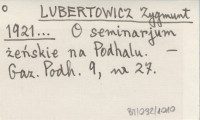 LUBERTOWICZ Zygmunt
1921... O seminarjum
żeńskie na Podhalu. –
Gaz. Podh. 9, nr 27.